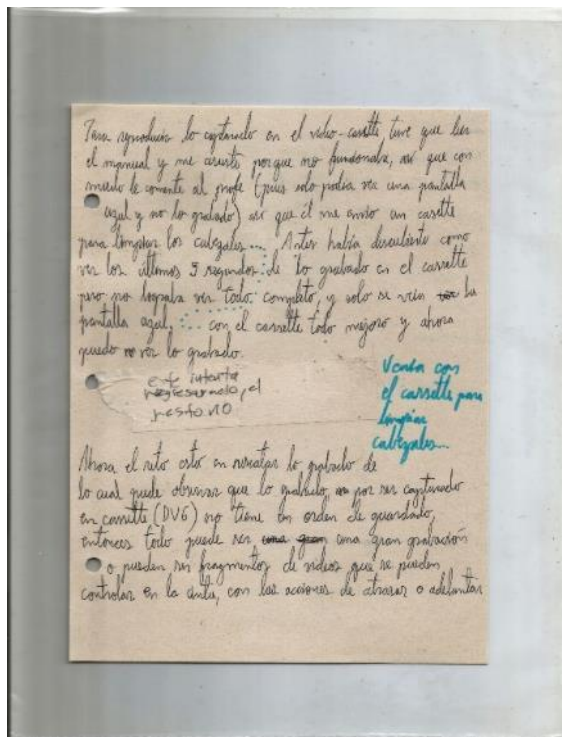 Para reproducir lo capturado en el video-cassette tuve que leer
el manual y me asuste porque no funcionaba, así que con
miedo le comente al profe (pues solo podía ver una pantalla
azul y no lo grabado) así que él me envio un casette
para limpiar los cabezales.... Antes había descubierto como
ver los últimos 5 segundos de lo grabado en el cassette
pero no lograba ver todo completo, y solo se veía la
pantalla azul. con el cassette todo mejoro y ahora
puedo ver lo grabado.
este intenta
regresarnoslo, el
resto no
Venia con
el cassette para
limpiar
cabezales...
Ahora el reto está en rescatar lo grabado de
lo cual puede observar que lo grabado, por ser capturado
en cassette (DV6) no tiene un orden de guardado,
entonces todo puede ser una gran una gran grabación
o pueden ser fragmentos de videos que se pueden
controlar en la cinta, con las acciones de atrasar o adelantar